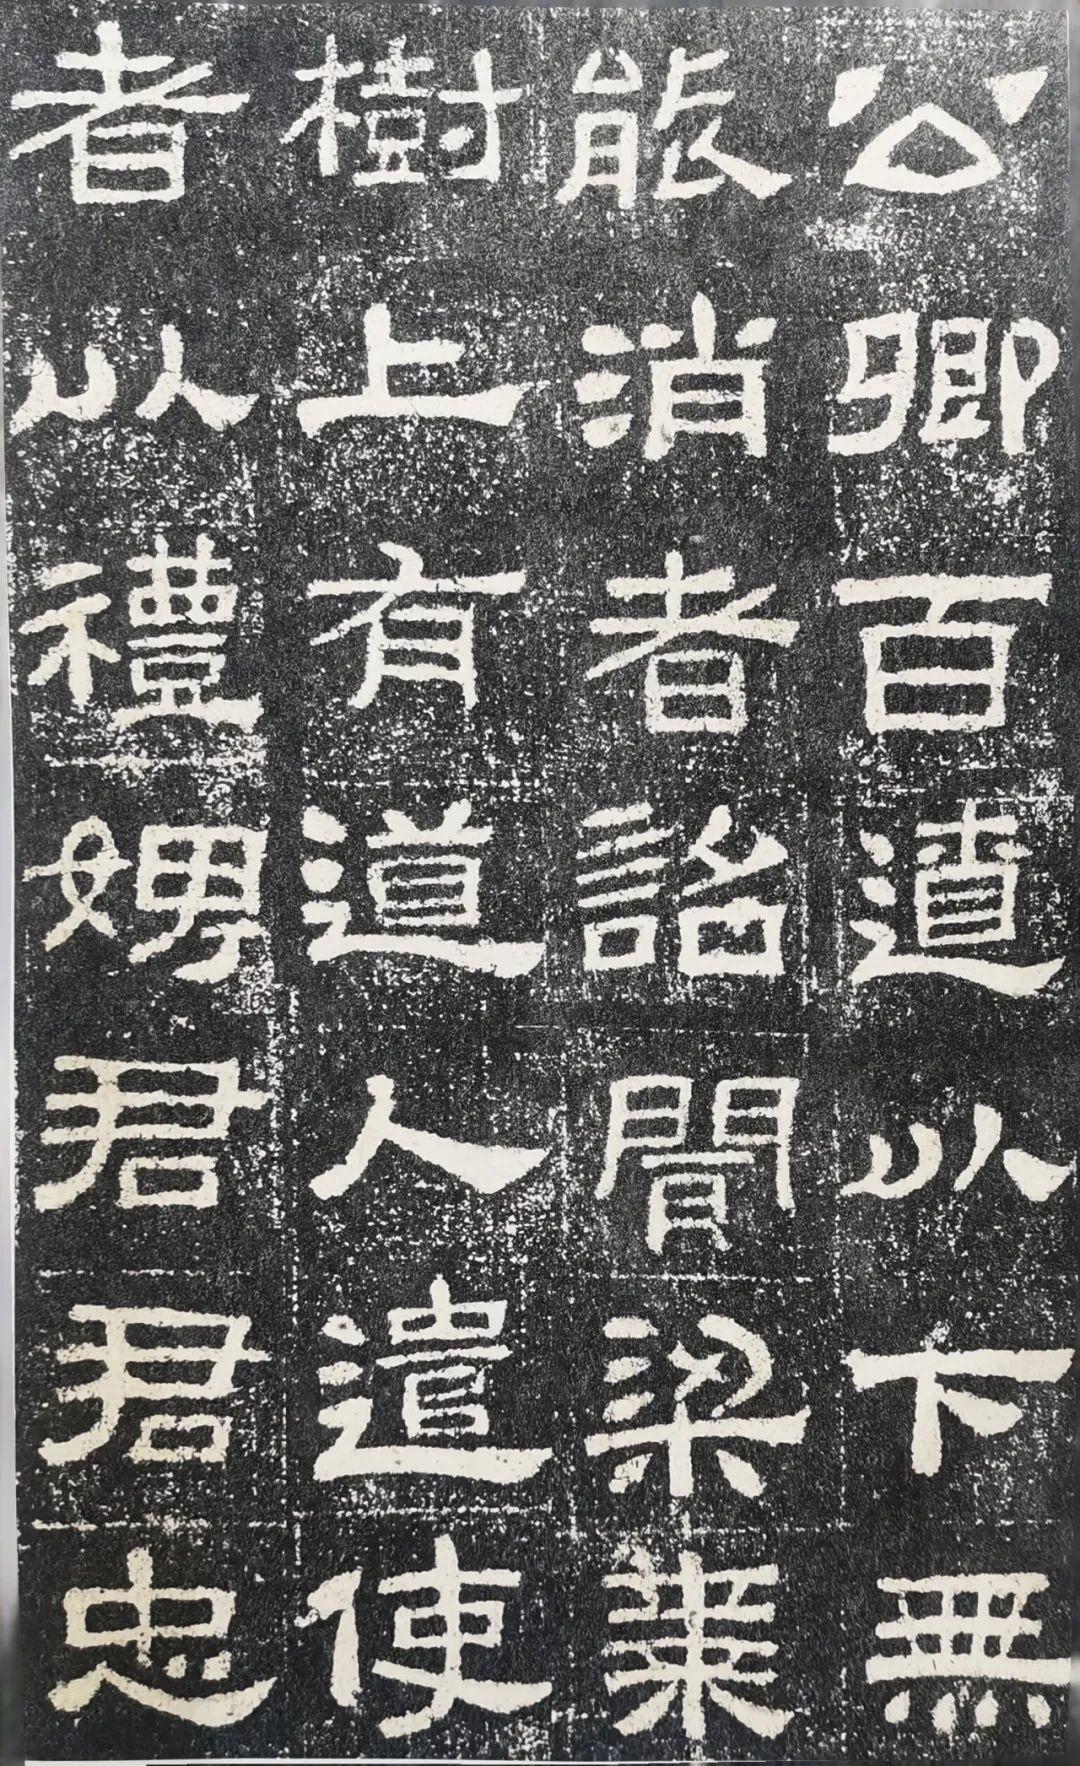 公卿百遼以下無
能消者詔聞梁棗
樹上有道人遣使
者以禮娉君君忠